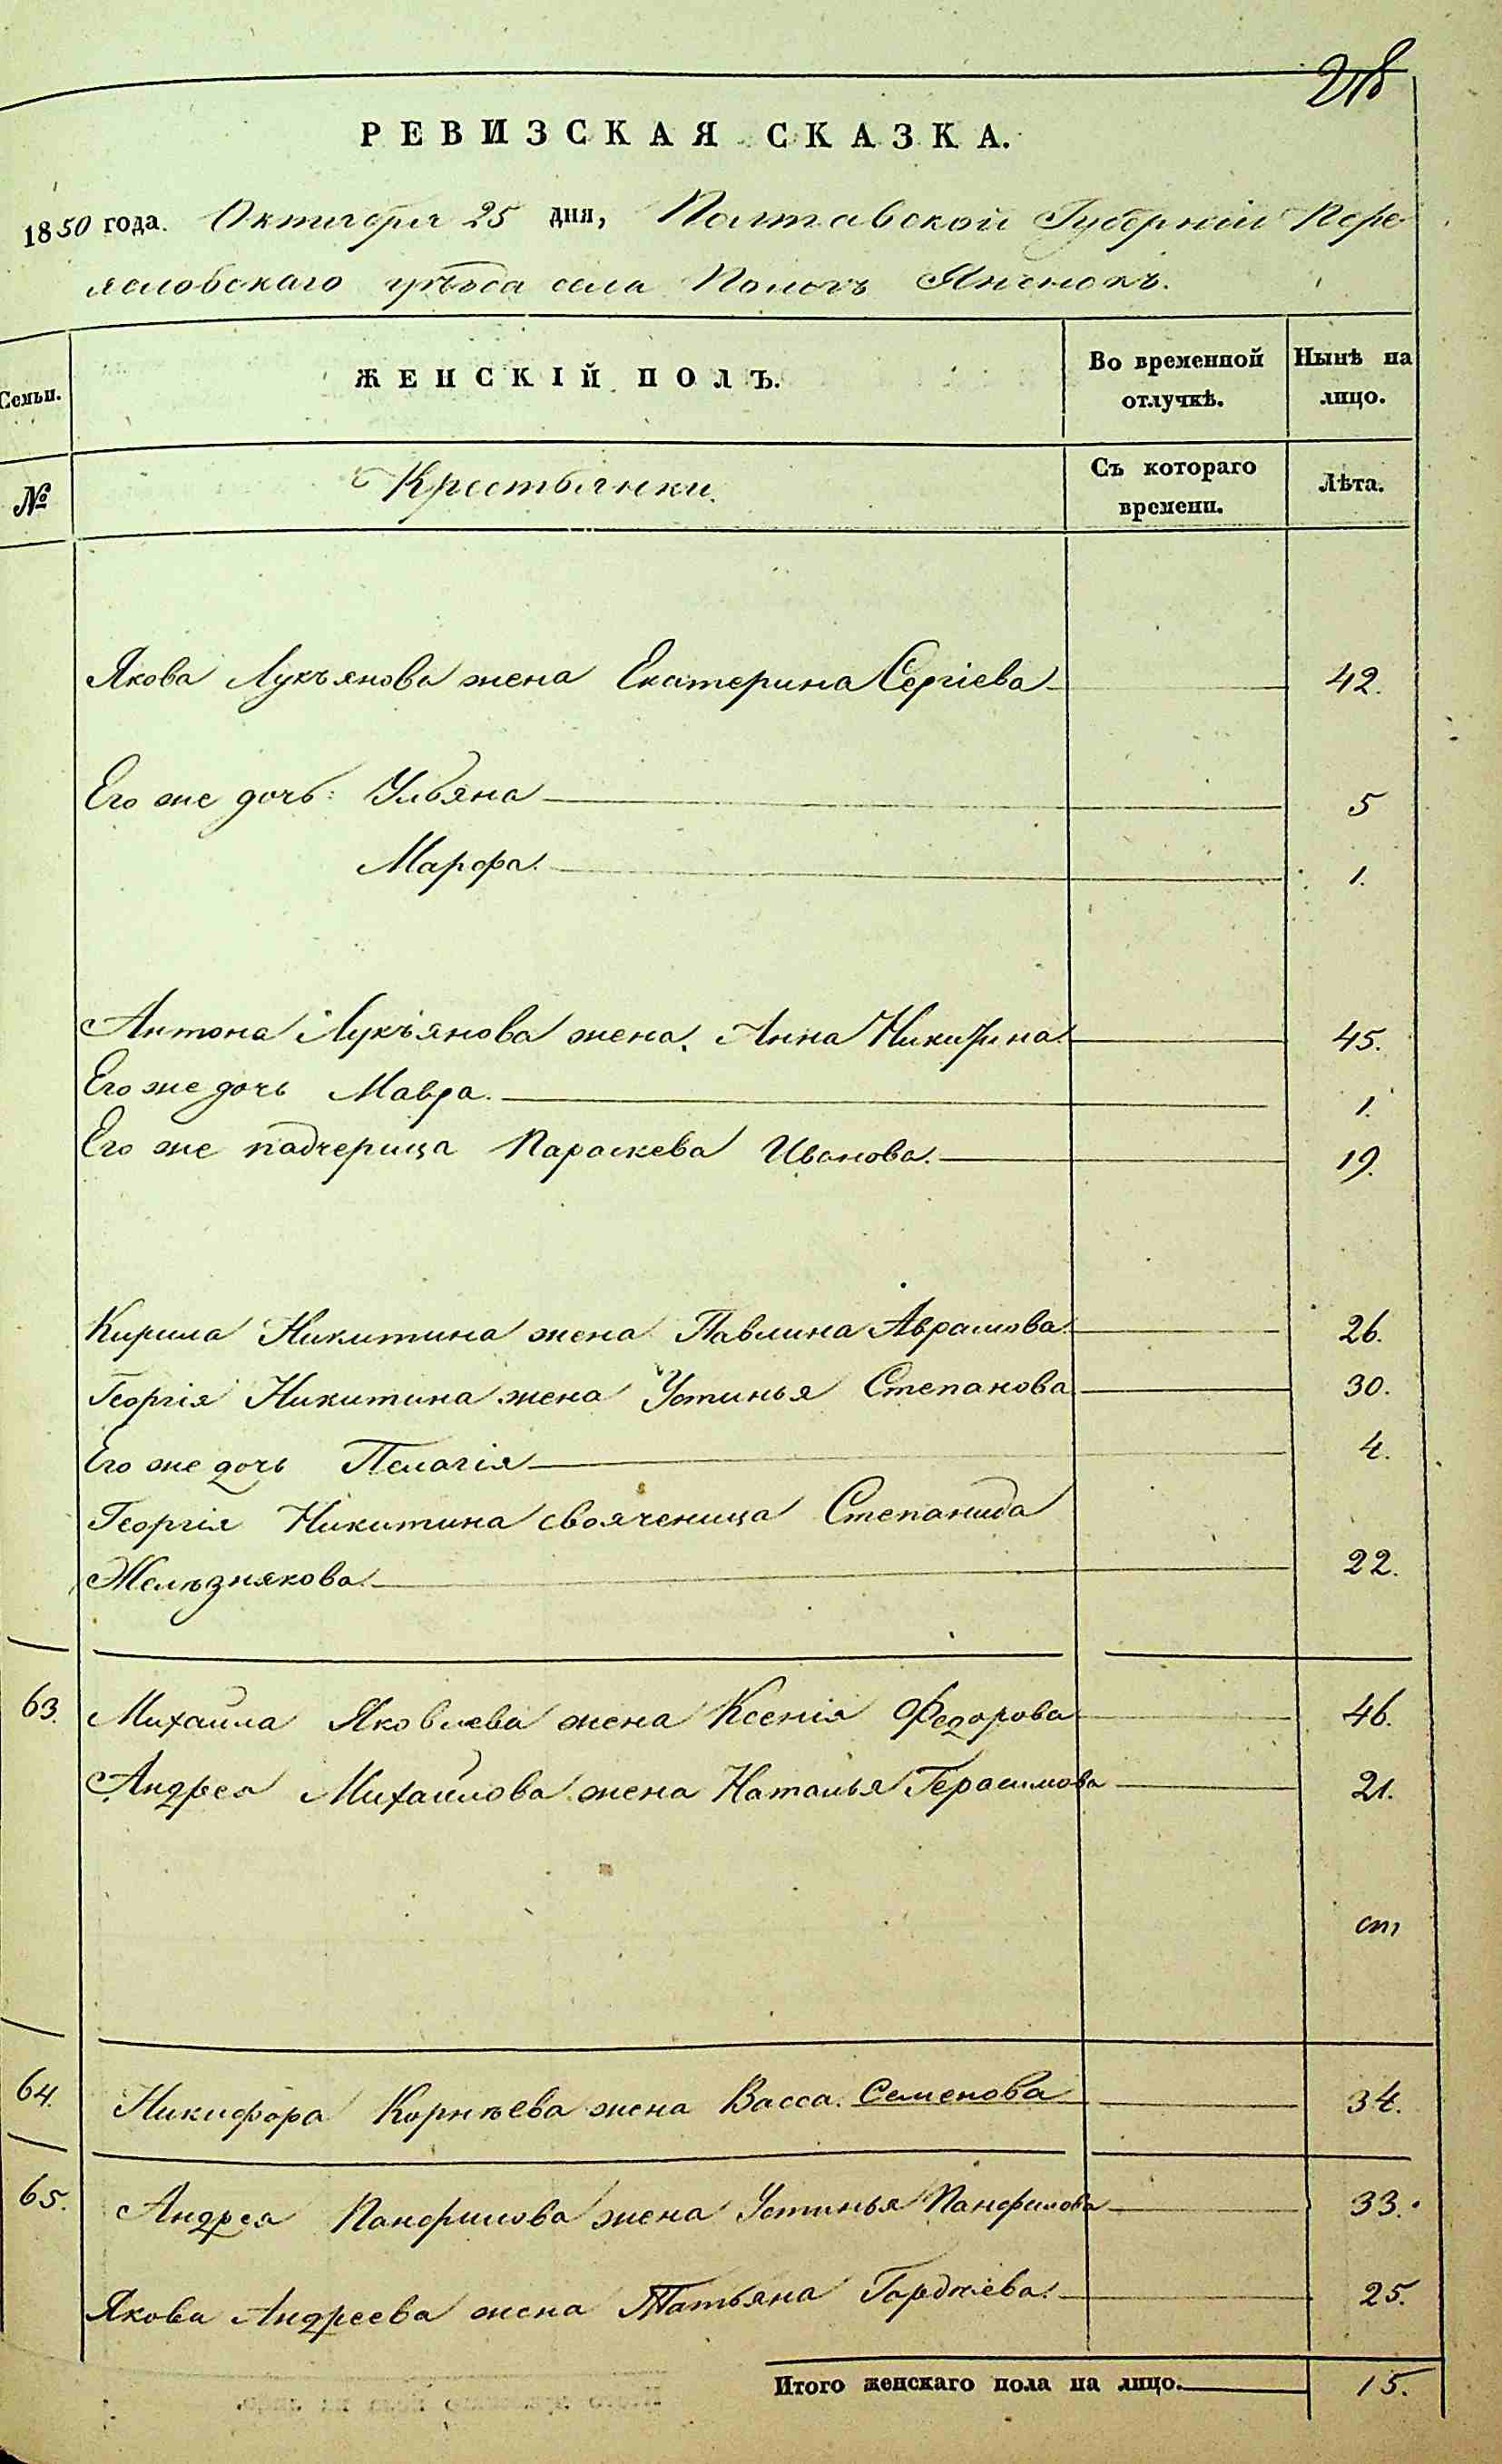 218
РЕВИЗСКАЯ СКАЗКА.
1850 года. Октября 25 дня, Полтавской Губерніи Пере-
яславскаго уѣзда села Пологъ Яненокъ.
Семьи.
ЖЕНСКІЙ ПОЛЪ.
Во временной отлучкѣ.
Нынѣ на лицо.
№
Крестьянки.
Съ котораго времени.
Лѣта.
Якова Лукъянова жена Екатерина Сергіева 42.
Его же дочь: Ульяна 5
Марфа. 1.
Антона Лукъянова жена. Анна Никитина 45.
Его же дочь Мавра. 1.
Его же падчерица Параскева Иванова. 19.
Кирила Никитина жена Павлина Аврамова 26.
Георгія Никитина жена Устинья Степанова 30.
Его же дочь Пелагія 4.
Георгія Никитина свояченица Степанида
Желѣзнякова. 22.
63. Михаила Яковлева жена Ксенія Федорова 46.
Андрея Михайлова жена Наталья Герасимова 21.
64. Никифора Корнѣева жена Васса. Семенова 34.
65. Андрея Панфилова жена Устинья Панфилова 33.
Якова Андреева жена Татьяна Гордіева. 25.
Итого женскаго пола на лицо. 15.